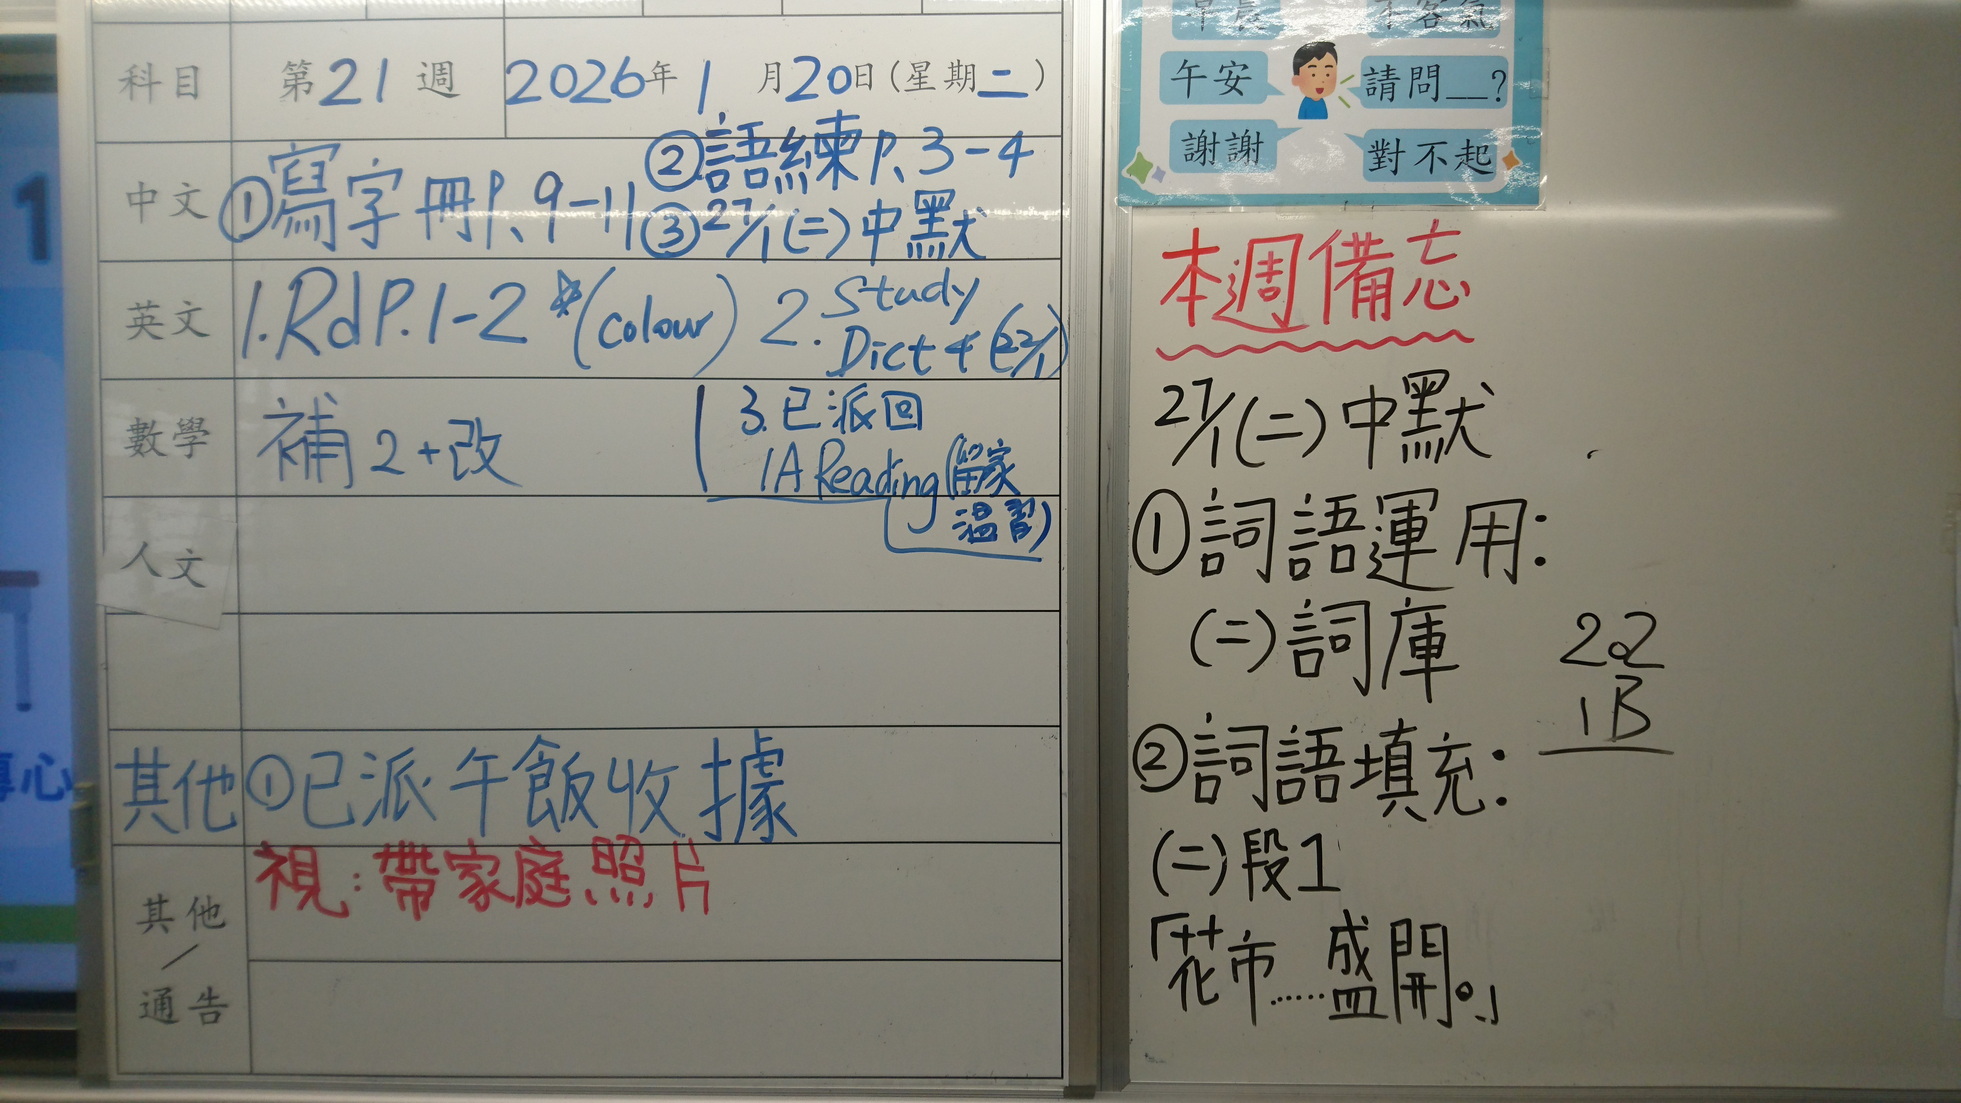 科目 第21週 2026年1月20日(星期二)
中文 ①寫字冊P.9-11 ②語練P.3-4
③27/1(二)中默
英文 1.Rd P.1-2 *(colour) 2. Study
Dict 4 (22/1)
數學 補2+改
3.已派回
1A Reading (留家
溫習)
人文
其他 ①已派午飯收據
其他/通告 視:帶家庭照片
1
專心
早晨
不客氣
午安
請問__?
謝謝
對不起
本週備忘
27/1(二)中默
①詞語運用:
(二)詞庫
②詞語填充:
(二)段1
「花市……盛開。」
22
1B